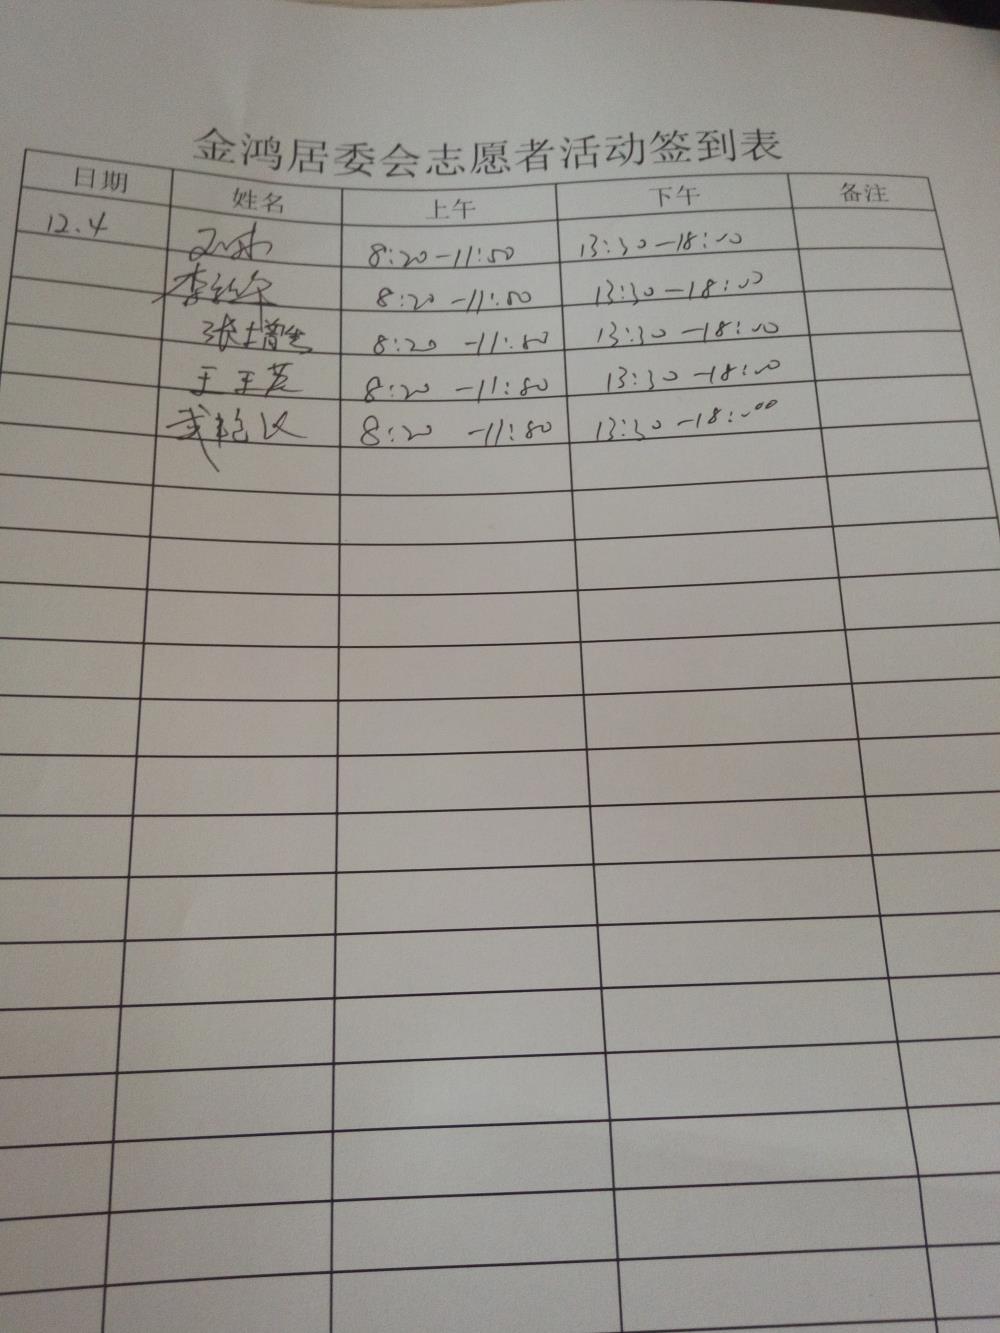 金鸿居委会志愿者活动签到表
日期 姓名 上午 下午 备注
12.4 8:20-11:50 13:30-18:00
李 8:20-11:50 13:30-18:00
张 8:20-11:50 13:30-18:00
王玉 8:20-11:50 13:30-18:00
武艳 8:20-11:50 13:30-18:00